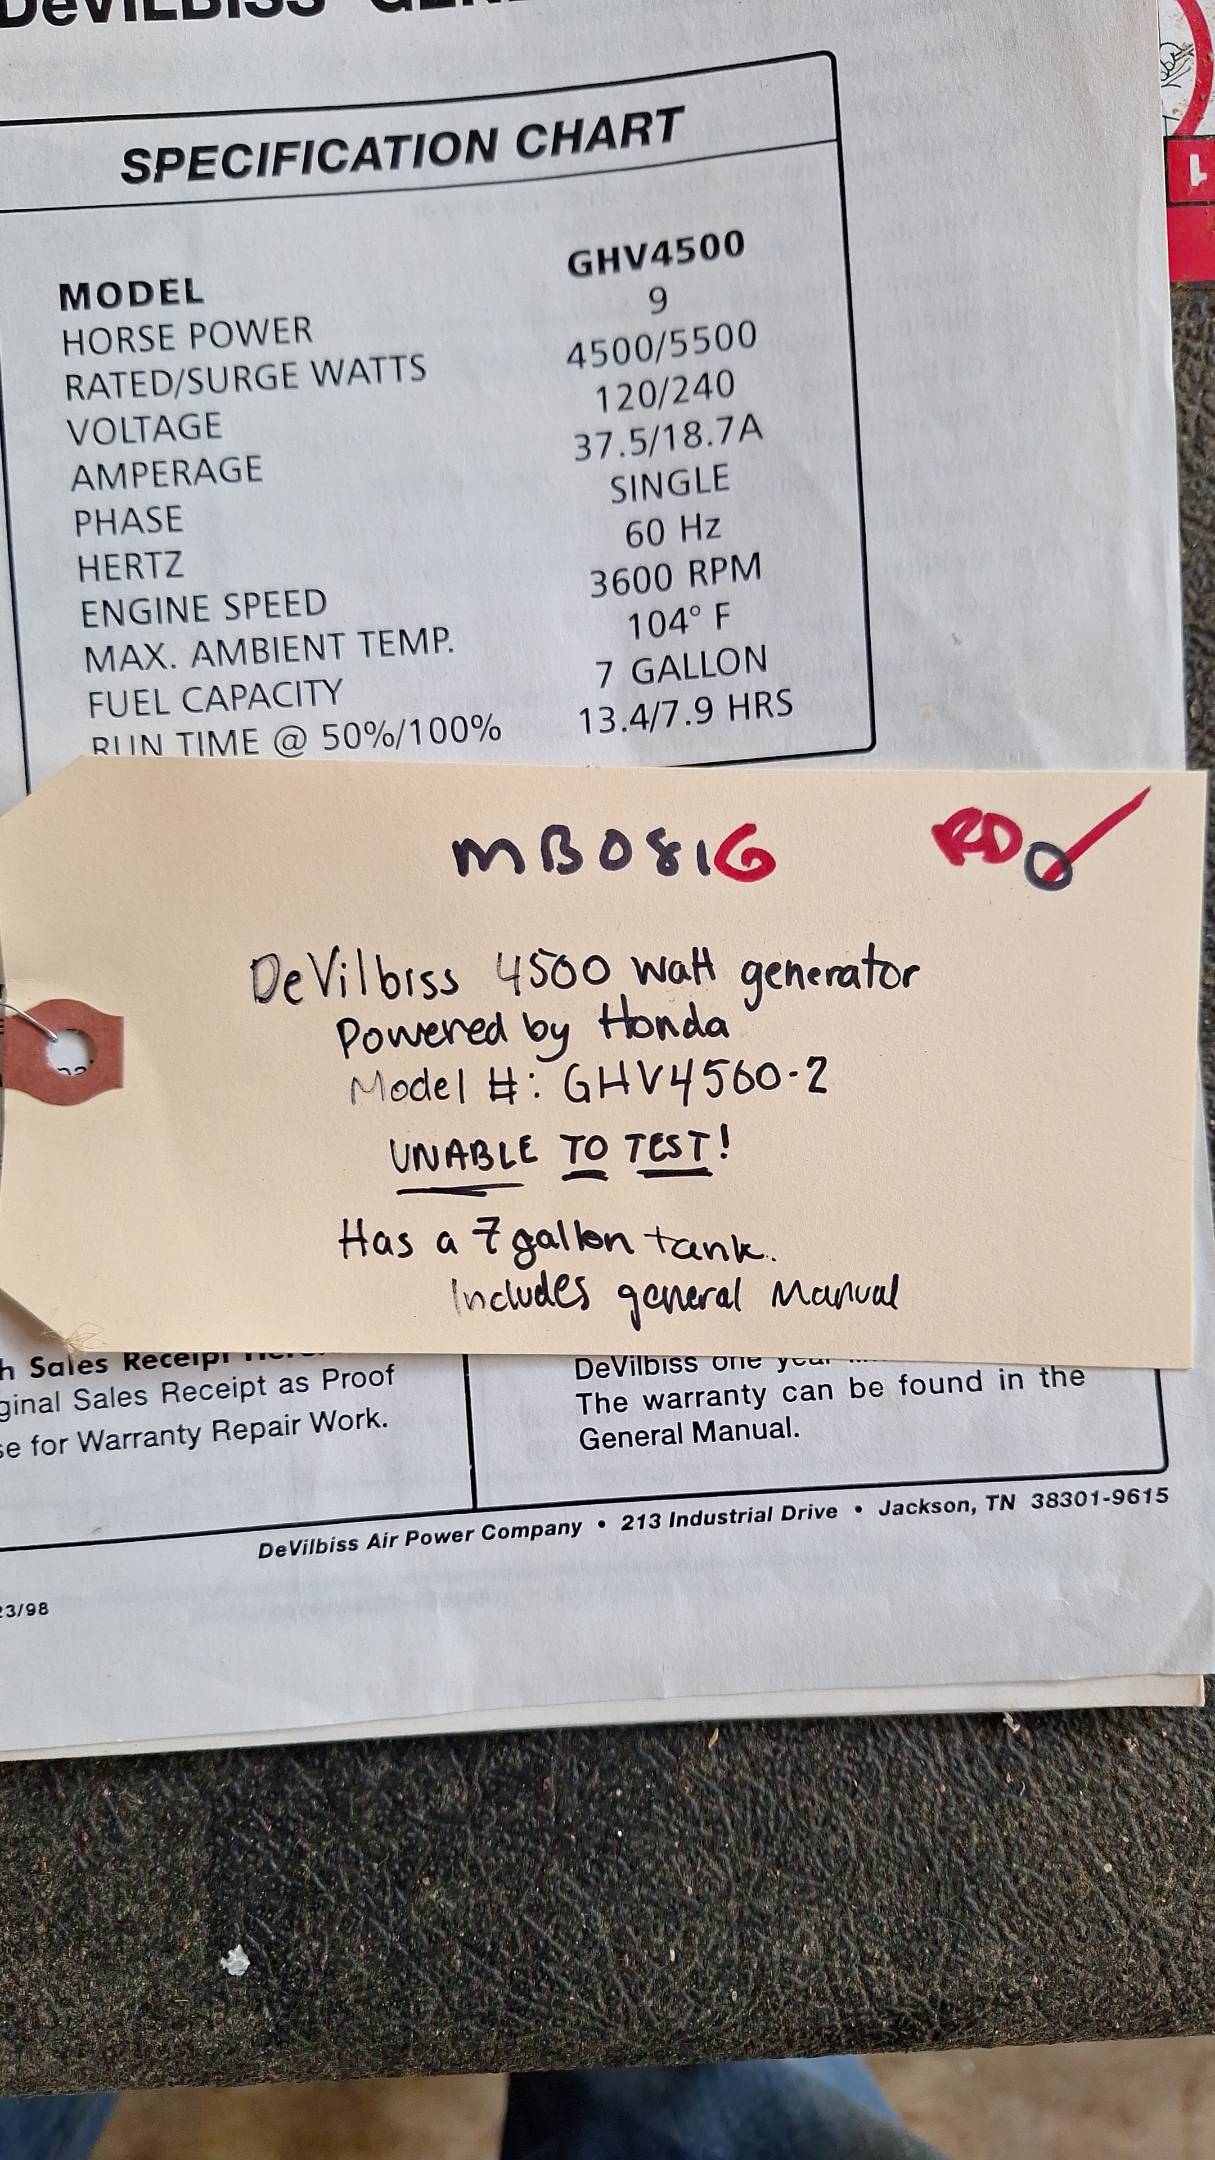 DeVILBISS
SPECIFICATION CHART
MODEL GHV4500
HORSE POWER 9
RATED/SURGE WATTS 4500/5500
VOLTAGE 120/240
AMPERAGE 37.5/18.7A
PHASE SINGLE
HERTZ 60 Hz
ENGINE SPEED 3600 RPM
MAX. AMBIENT TEMP. 104° F
FUEL CAPACITY 7 GALLON
RUN TIME @ 50%/100% 13.4/7.9 HRS
MB0816 RD
DeVilbiss 4500 watt generator
Powered by Honda
Model #: GHV4500-2
UNABLE TO TEST!
Has a 7 gallon tank.
Includes general Manual
Sales Receipt
ginal Sales Receipt as Proof
se for Warranty Repair Work.
DeVilbiss one
The warranty can be found in the
General Manual.
DeVilbiss Air Power Company • 213 Industrial Drive • Jackson, TN 38301-9615
23/98